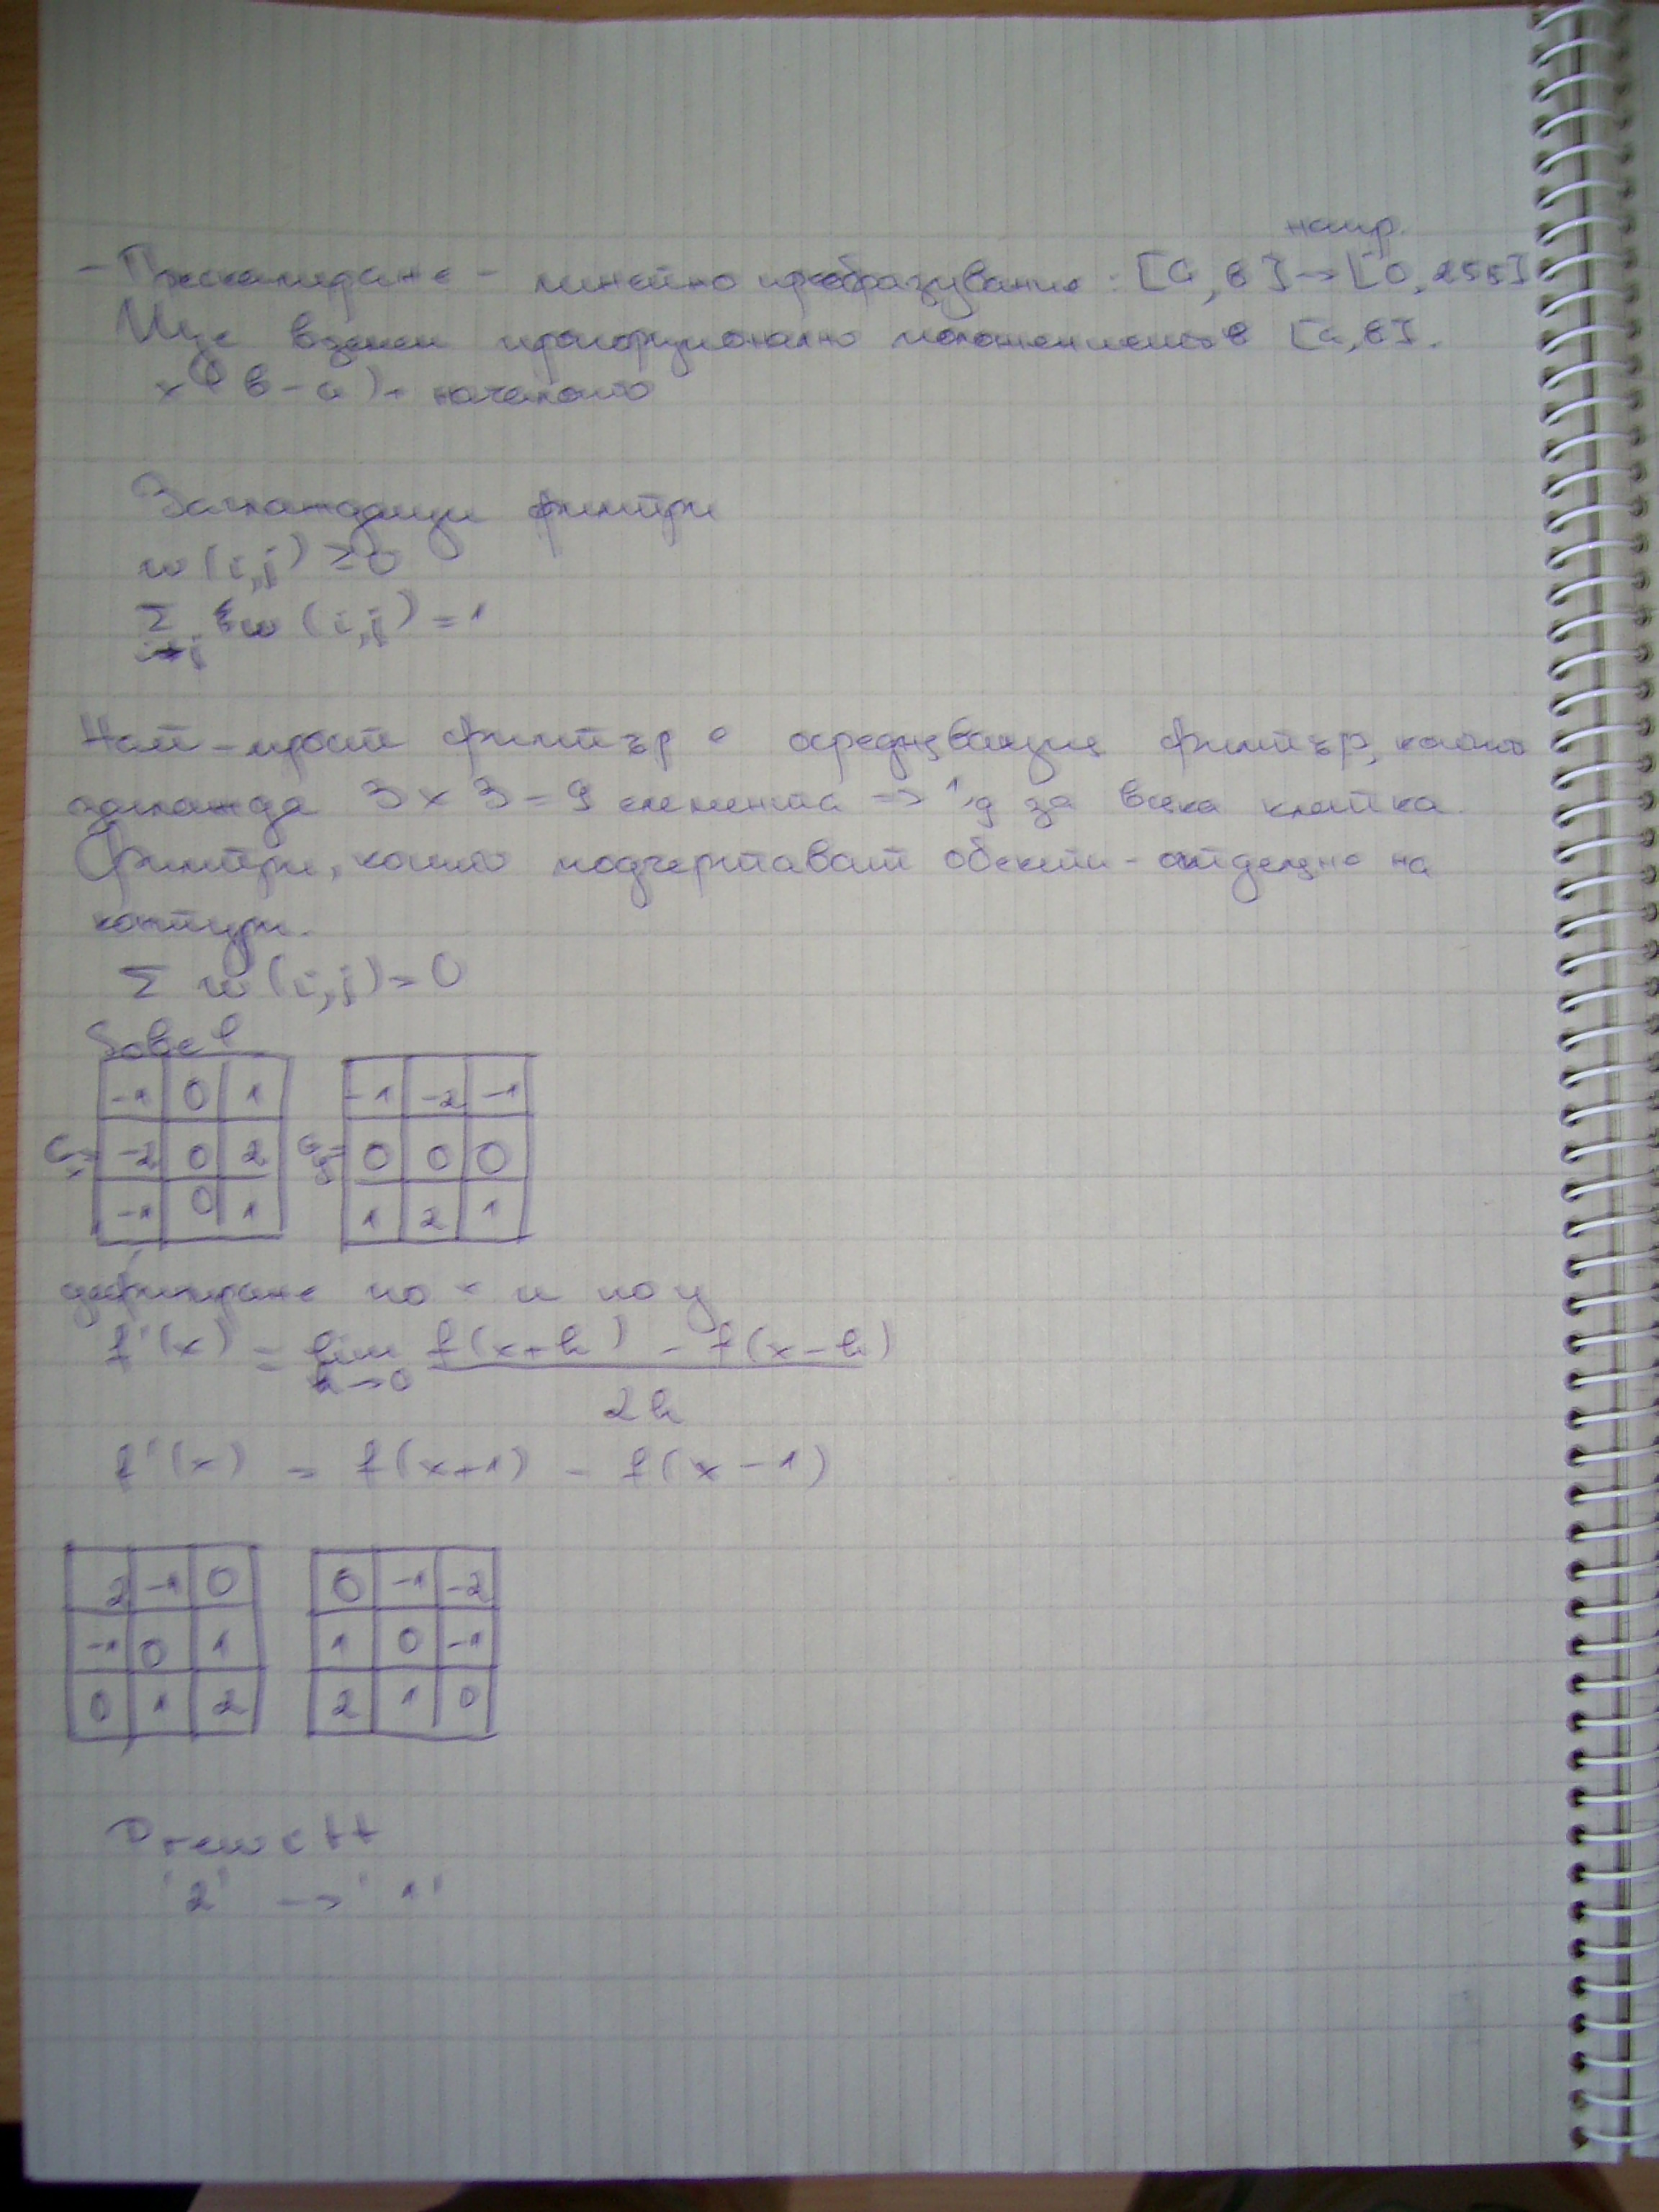 напр.
- Прескалиране - линейно преобразувание : [a, в] -> [0, 255]
Ще вземем пропорционално положението в [a, в].
x (в - a) + началото
Заглаждащи филтри
w (i, j) ≥ 0
Σ w (i, j) = 1
i j
Най-прост филтър е осредняващия филтър, който
заглажда 3 x 3 = 9 елемента => 1/9 за всяка клетка.
Филтри, които подчертават обекти - отделяне на
контури.
Σ w (i, j) = 0
Sobel
-1 0 1 -1 -2 -1
Gx = -2 0 2 Gy = 0 0 0
-1 0 1 1 2 1
по x и по y
f'(x) = lim f(x+h) - f(x-h)
h->0 2h
f'(x) = f(x+1) - f(x-1)
2 -1 0 0 -1 -2
-1 0 1 1 0 -1
0 1 2 2 1 0
Prewett
'2' -> '1'